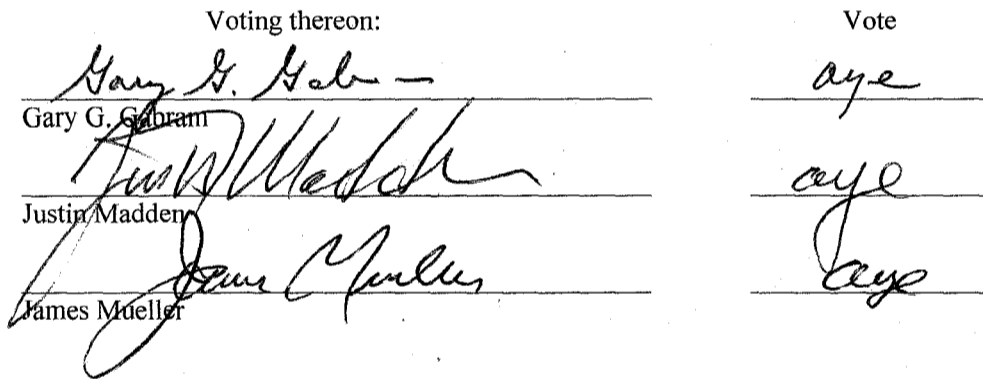 Voting thereon: Vote
Gary G. Gabram aye
Gary G. Gabram
Justin Madden aye
Justin Madden
James Mueller aye
James Mueller